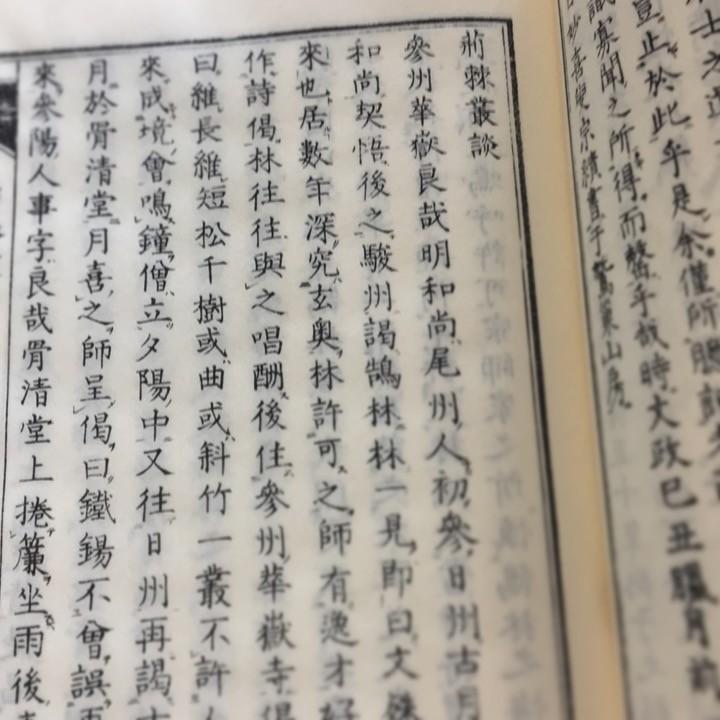 士之
豈止於此乎是余僅所
識寡聞之所得而
時大政己丑臘月
荊棘叢談
參州華嶽良哉明和尚尾州人初參日州古月
和尚契悟後之駿州謁鵠林林一見即曰文殊
來也居數年深究玄奧林許可之師有逸才好
作詩偈林往往與之唱酬後住參州華嶽寺
曰維長維短松千樹或曲或斜竹一叢不許人
來成境會鳴鐘僧立夕陽中又往日州再謁古
月於骨清堂月喜之師呈偈曰鐵錫不曾誤再
來參陽人事字良哉骨清堂上捲簾坐雨後